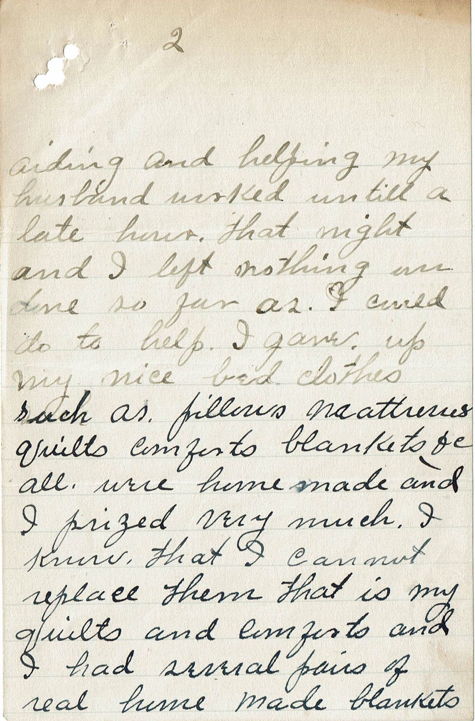 2
aiding and helping my
husband worked untill a
late hour. that night
and I left nothing un
done so far as. I could
do to help. I gave. up
my nice bed. clothes
such as. pillows mattresses
quilts comforts blankets &c
all. were home made and
I prized very much. I
know. that I cannot
replace them that is my
quilts and comforts and
I had several pairs of
real home made blankets